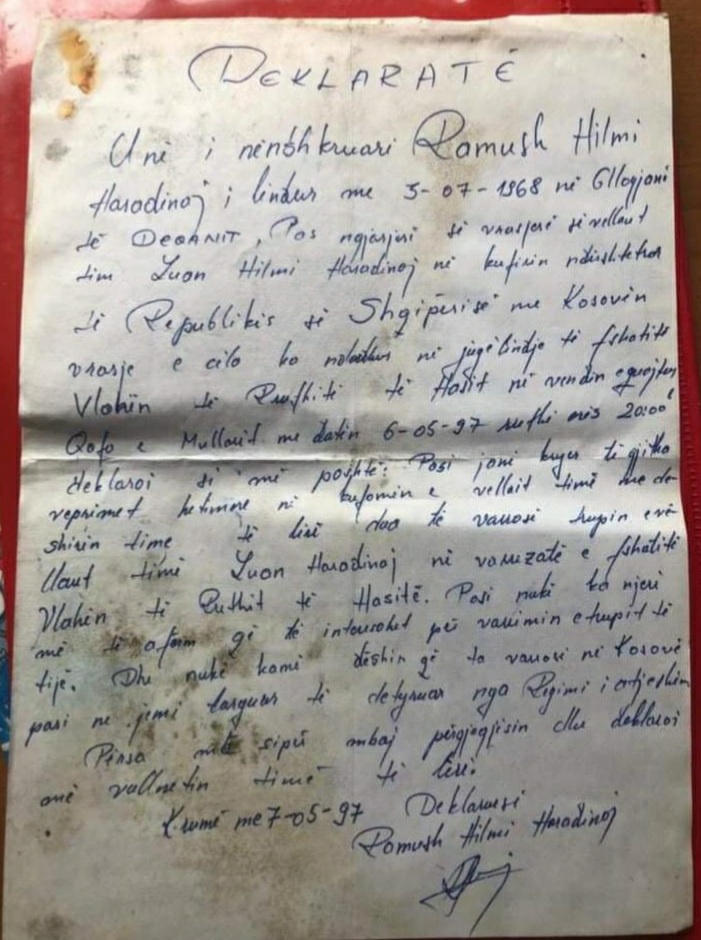 DEKLARATË
Unë i nënshkruari Ramush Hilmi
Haradinaj i lindur me 3-07-1968 në Gllogjani
të DEÇANIT, Pas ngjarjes së vrasjes së vellaut
tim Luan Hilmi Haradinaj në kufirin ndërshtetror
të Republikës së Shqipërisë me Kosovën
vrasje e cila ka ndodhur në jugëlindje të fshatit
Vlahën të Hasit në vendin e quajtur
Qafa e Mullarit me datën 6-05-97 rreth orës 20:00
deklaroj si më poshtë: Pasi janë kryer të gjitha
veprimet hetimore në kufomën e vellait timë me dë-
shirën time të lirë dua të varrosë trupin e vë-
llaut timë Luan Haradinaj në varrezatë e fshatitë
Vlahën të Hasitë. Pasi nukë ka njeri
më të afërm që të interesohet për varrimin e trupit të
tijë. Dhe nukë kamë dëshirë që ta varrosi në Kosovë
pasi ne jemi larguar të detyruar nga Regjimi i atjeshëm
Përsa më sipër mbaj përgjegjësin dhe deklaroi
më vullnetin timë të lirë.
Krumë me 7-05-97 Deklaruesi
Ramush Hilmi Haradinaj